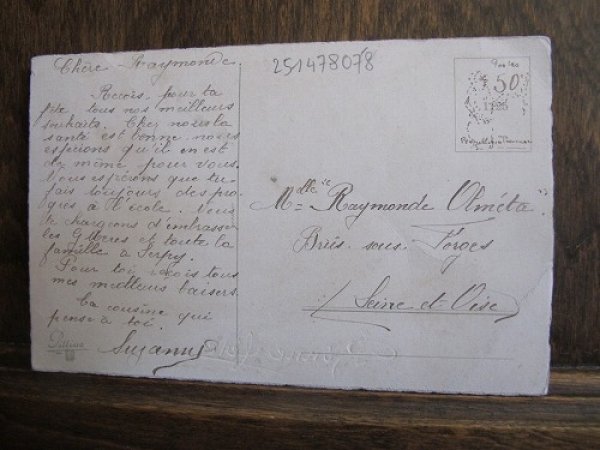 Chère Raymonde
251478078
Reçois pour ta
fête tous nos meilleurs
souhaits. Chez nous la
santé est bonne nous
espérions qu'il en est
de même pour vous.
Nous espérons que tu
fais toujours des pro
grès à l'école. Nous
te chargeons d'embrasser
les et toute la
famille à
Pour toi reçois tous
mes meilleurs baisers
Ta cousine qui
pense à toi.
Suzanne
50
Mlle Raymonde Olméta
Briis sous Forges
Seine et Oise